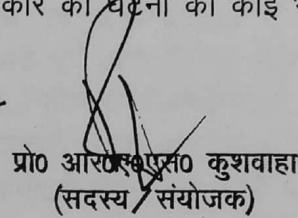 कार की घटना की कोई
प्रो0 आर0ए0एस0 कुशवाहा
(सदस्य / संयोजक)